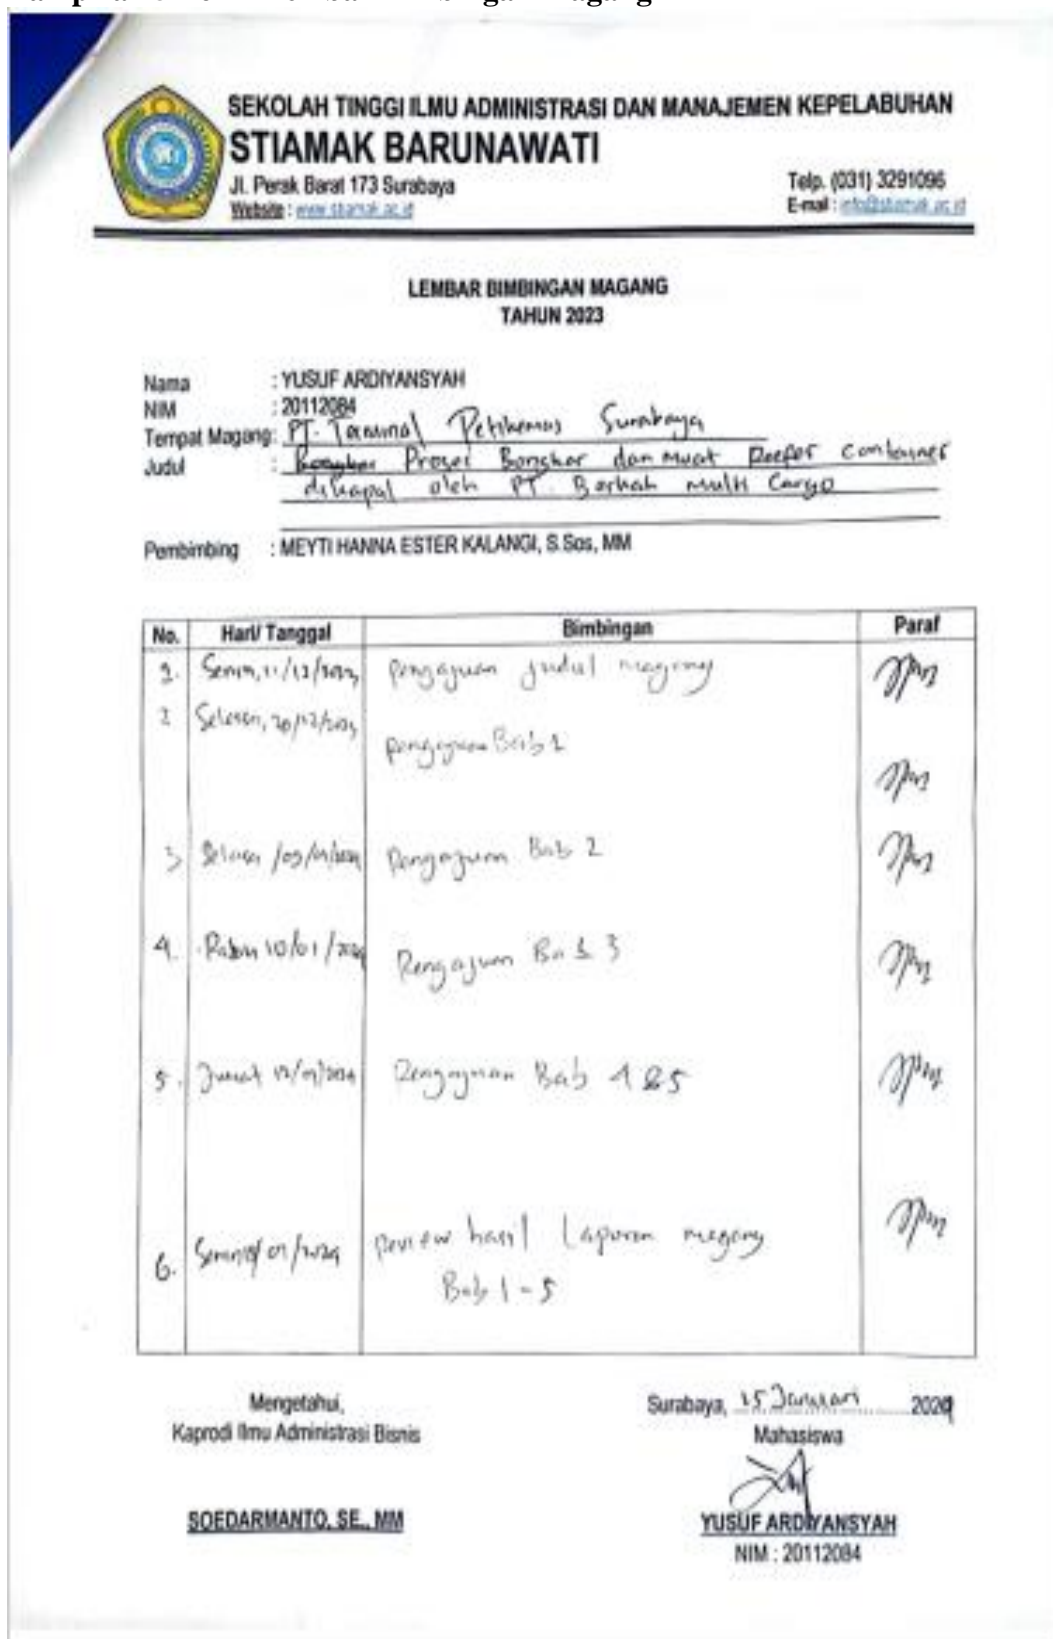 SEKOLAH TINGGI ILMU ADMINISTRASI DAN MANAJEMEN KEPELABUHAN
STIAMAK BARUNAWATI
Jl. Perak Barat 173 Surabaya
Telp. (031) 3291096
Website : www.stiamak.ac.id
E-mail : info@stiamak.ac.id
LEMBAR BIMBINGAN MAGANG
TAHUN 2023
Nama : YUSUF ARDIYANSYAH
NIM : 20112084
Tempat Magang: PT. Terminal Petikemas Surabaya
Judul : Proses Bongkar dan Muat Reefer container
dikapal oleh PT. Berkah multi Cargo
Pembimbing : MEYTI HANNA ESTER KALANGI, S.Sos, MM
No. Hari/ Tanggal Bimbingan Paraf
1. Senin, 11/12/2023 pengajuan judul magang
2 Selasa, 20/12/2023 pengajuan Bab 1
3 Selasa /09/01/2024 Pengajuan Bab 2
4. Rabu 10/01/2024 Pengajuan Bab 3
5. Jumat 12/01/2024 Pengajuan Bab 4 & 5
6. Senin 01/2024 Review hasil Laporan magang
Bab 1 - 5
Mengetahui,
Kaprodi Ilmu Administrasi Bisnis
Surabaya, 15 Januari 2024
Mahasiswa
SOEDARMANTO, SE., MM
YUSUF ARDIYANSYAH
NIM : 20112084